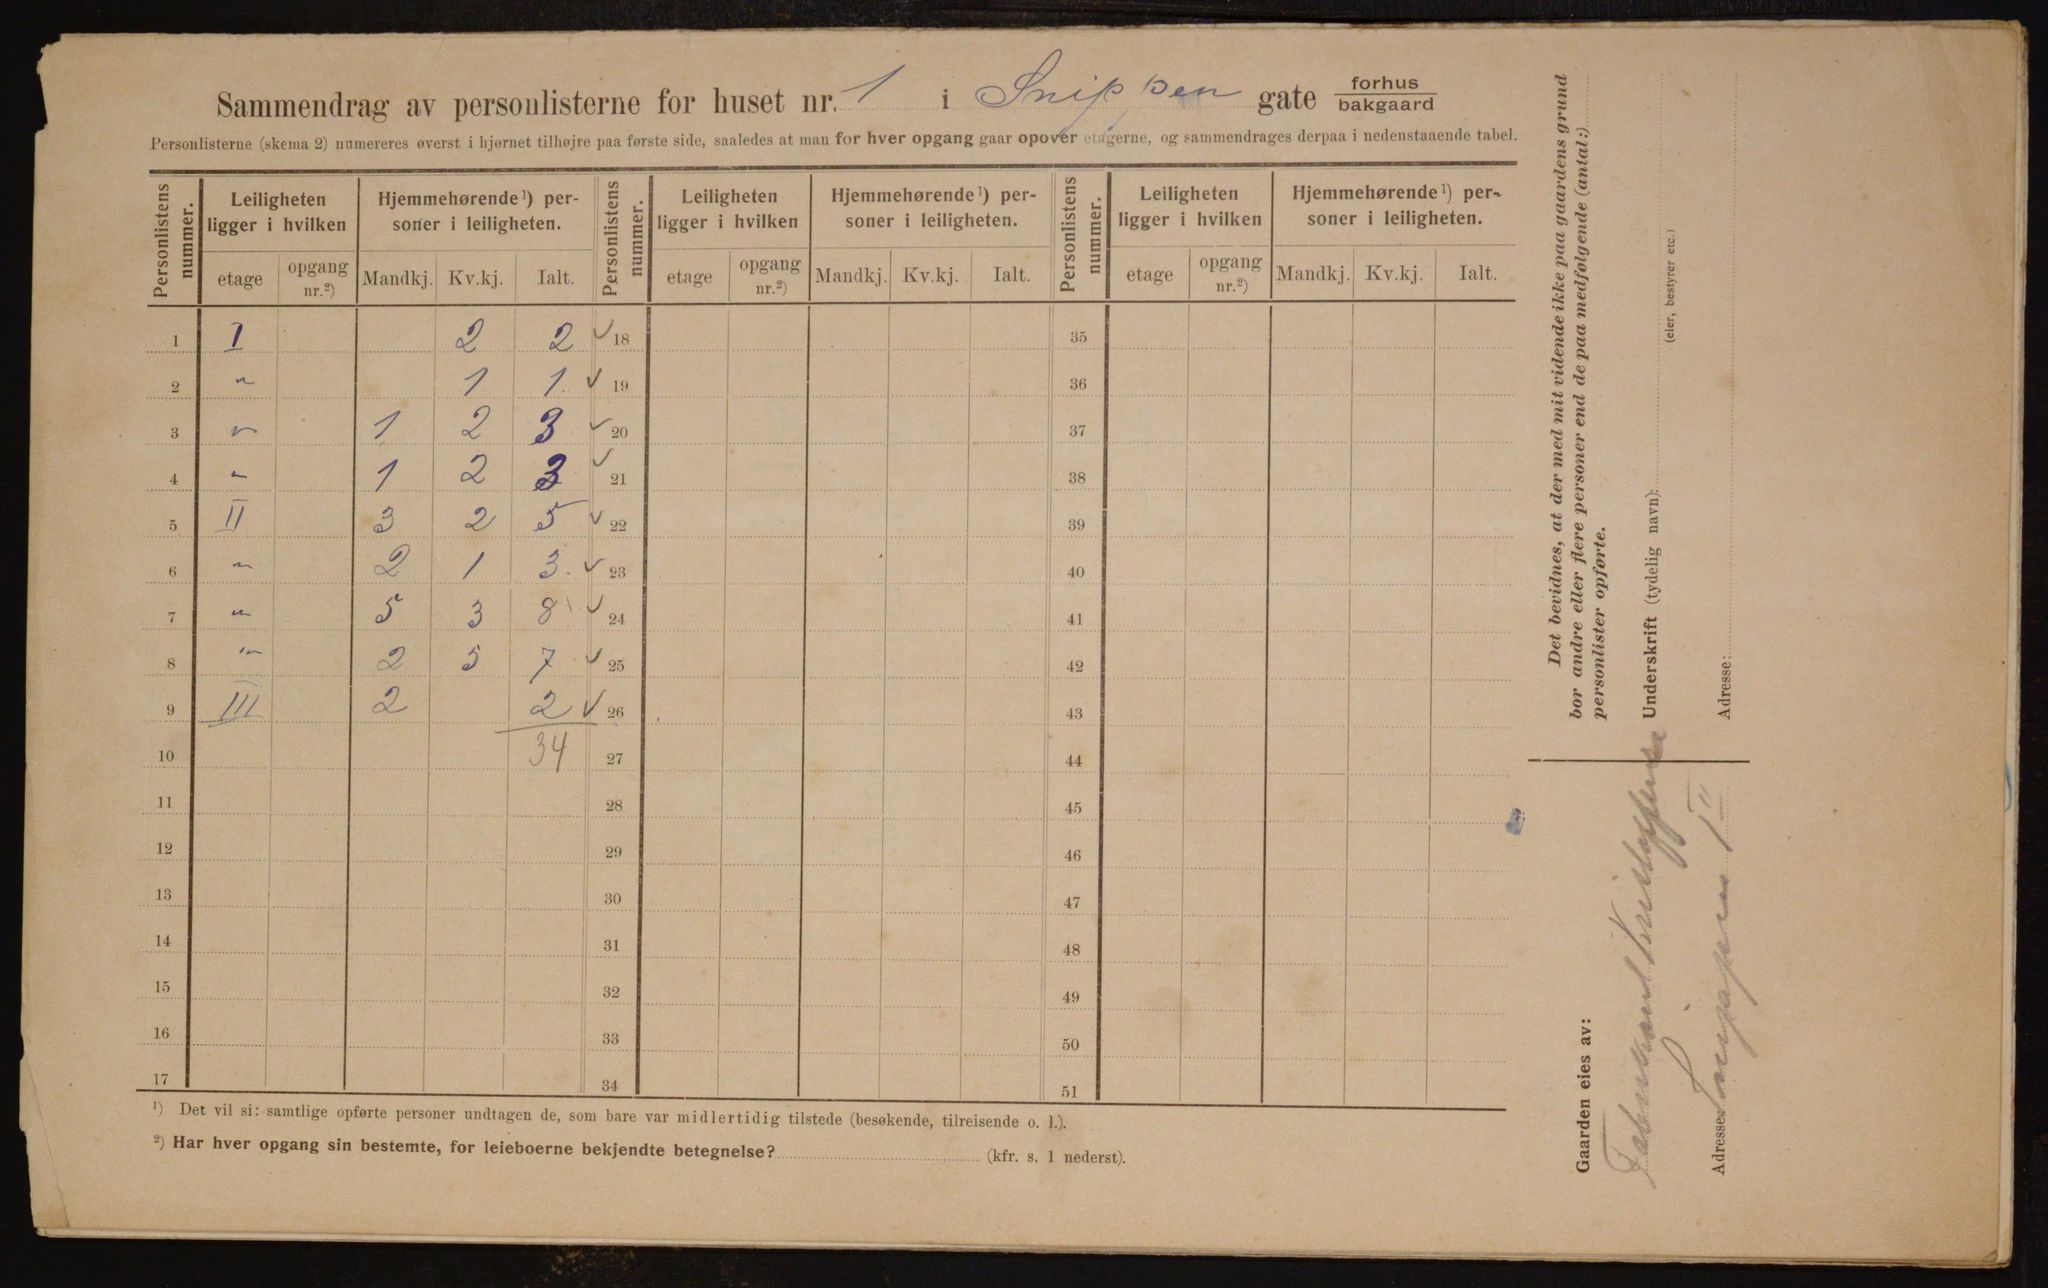 Sammendrag av personlisterne for huset nr. 1 i Snippen gate forhus
bakgaard
Personlisterne (skema 2) numereres øverst i hjørnet tilhøjre paa første side, saaledes at man for hver opgang gaar opover etagerne, og sammendrages derpaa i nedenstaaende tabel.
Personlistens nummer. Leiligheten ligger i hvilken Hjemmehørende ¹) personer i leiligheten. Personlistens nummer. Leiligheten ligger i hvilken Hjemmehørende ¹) personer i leiligheten. Personlistens nummer. Leiligheten ligger i hvilken Hjemmehørende ¹) personer i leiligheten.
etage opgang nr.²) Mandkj. Kv.kj. Ialt. etage opgang nr.²) Mandkj. Kv.kj. Ialt. etage opgang nr.²) Mandkj. Kv.kj. Ialt.
1 I 2 2 ✓ 18 35
2 " 1 1 ✓ 19 36
3 " 1 2 3 ✓ 20 37
4 " 1 2 3 ✓ 21 38
5 II 3 2 5 ✓ 22 39
6 " 2 1 3 ✓ 23 40
7 " 5 3 8 ✓ 24 41
8 " 2 5 7 ✓ 25 42
9 III 2 2 ✓ 26 43
10 34 27 44
11 28 45
12 29 46
13 30 47
14 31 48
15 32 49
16 33 50
17 34 51
¹) Det vil si: samtlige opførte personer undtagen de, som bare var midlertidig tilstede (besøkende, tilreisende o. l.).
²) Har hver opgang sin bestemte, for leieboerne bekjendte betegnelse? (kfr. s. 1 nederst).
Det bevidnes, at der med mit vidende ikke paa gaardens grund
bor andre eller flere personer end de paa medfølgende (antal:)
personlister opførte.
Underskrift (tydelig navn):
(eier, bestyrer etc.)
Adresse:
Gaarden eies av:
Adresse: Snippen 1 II